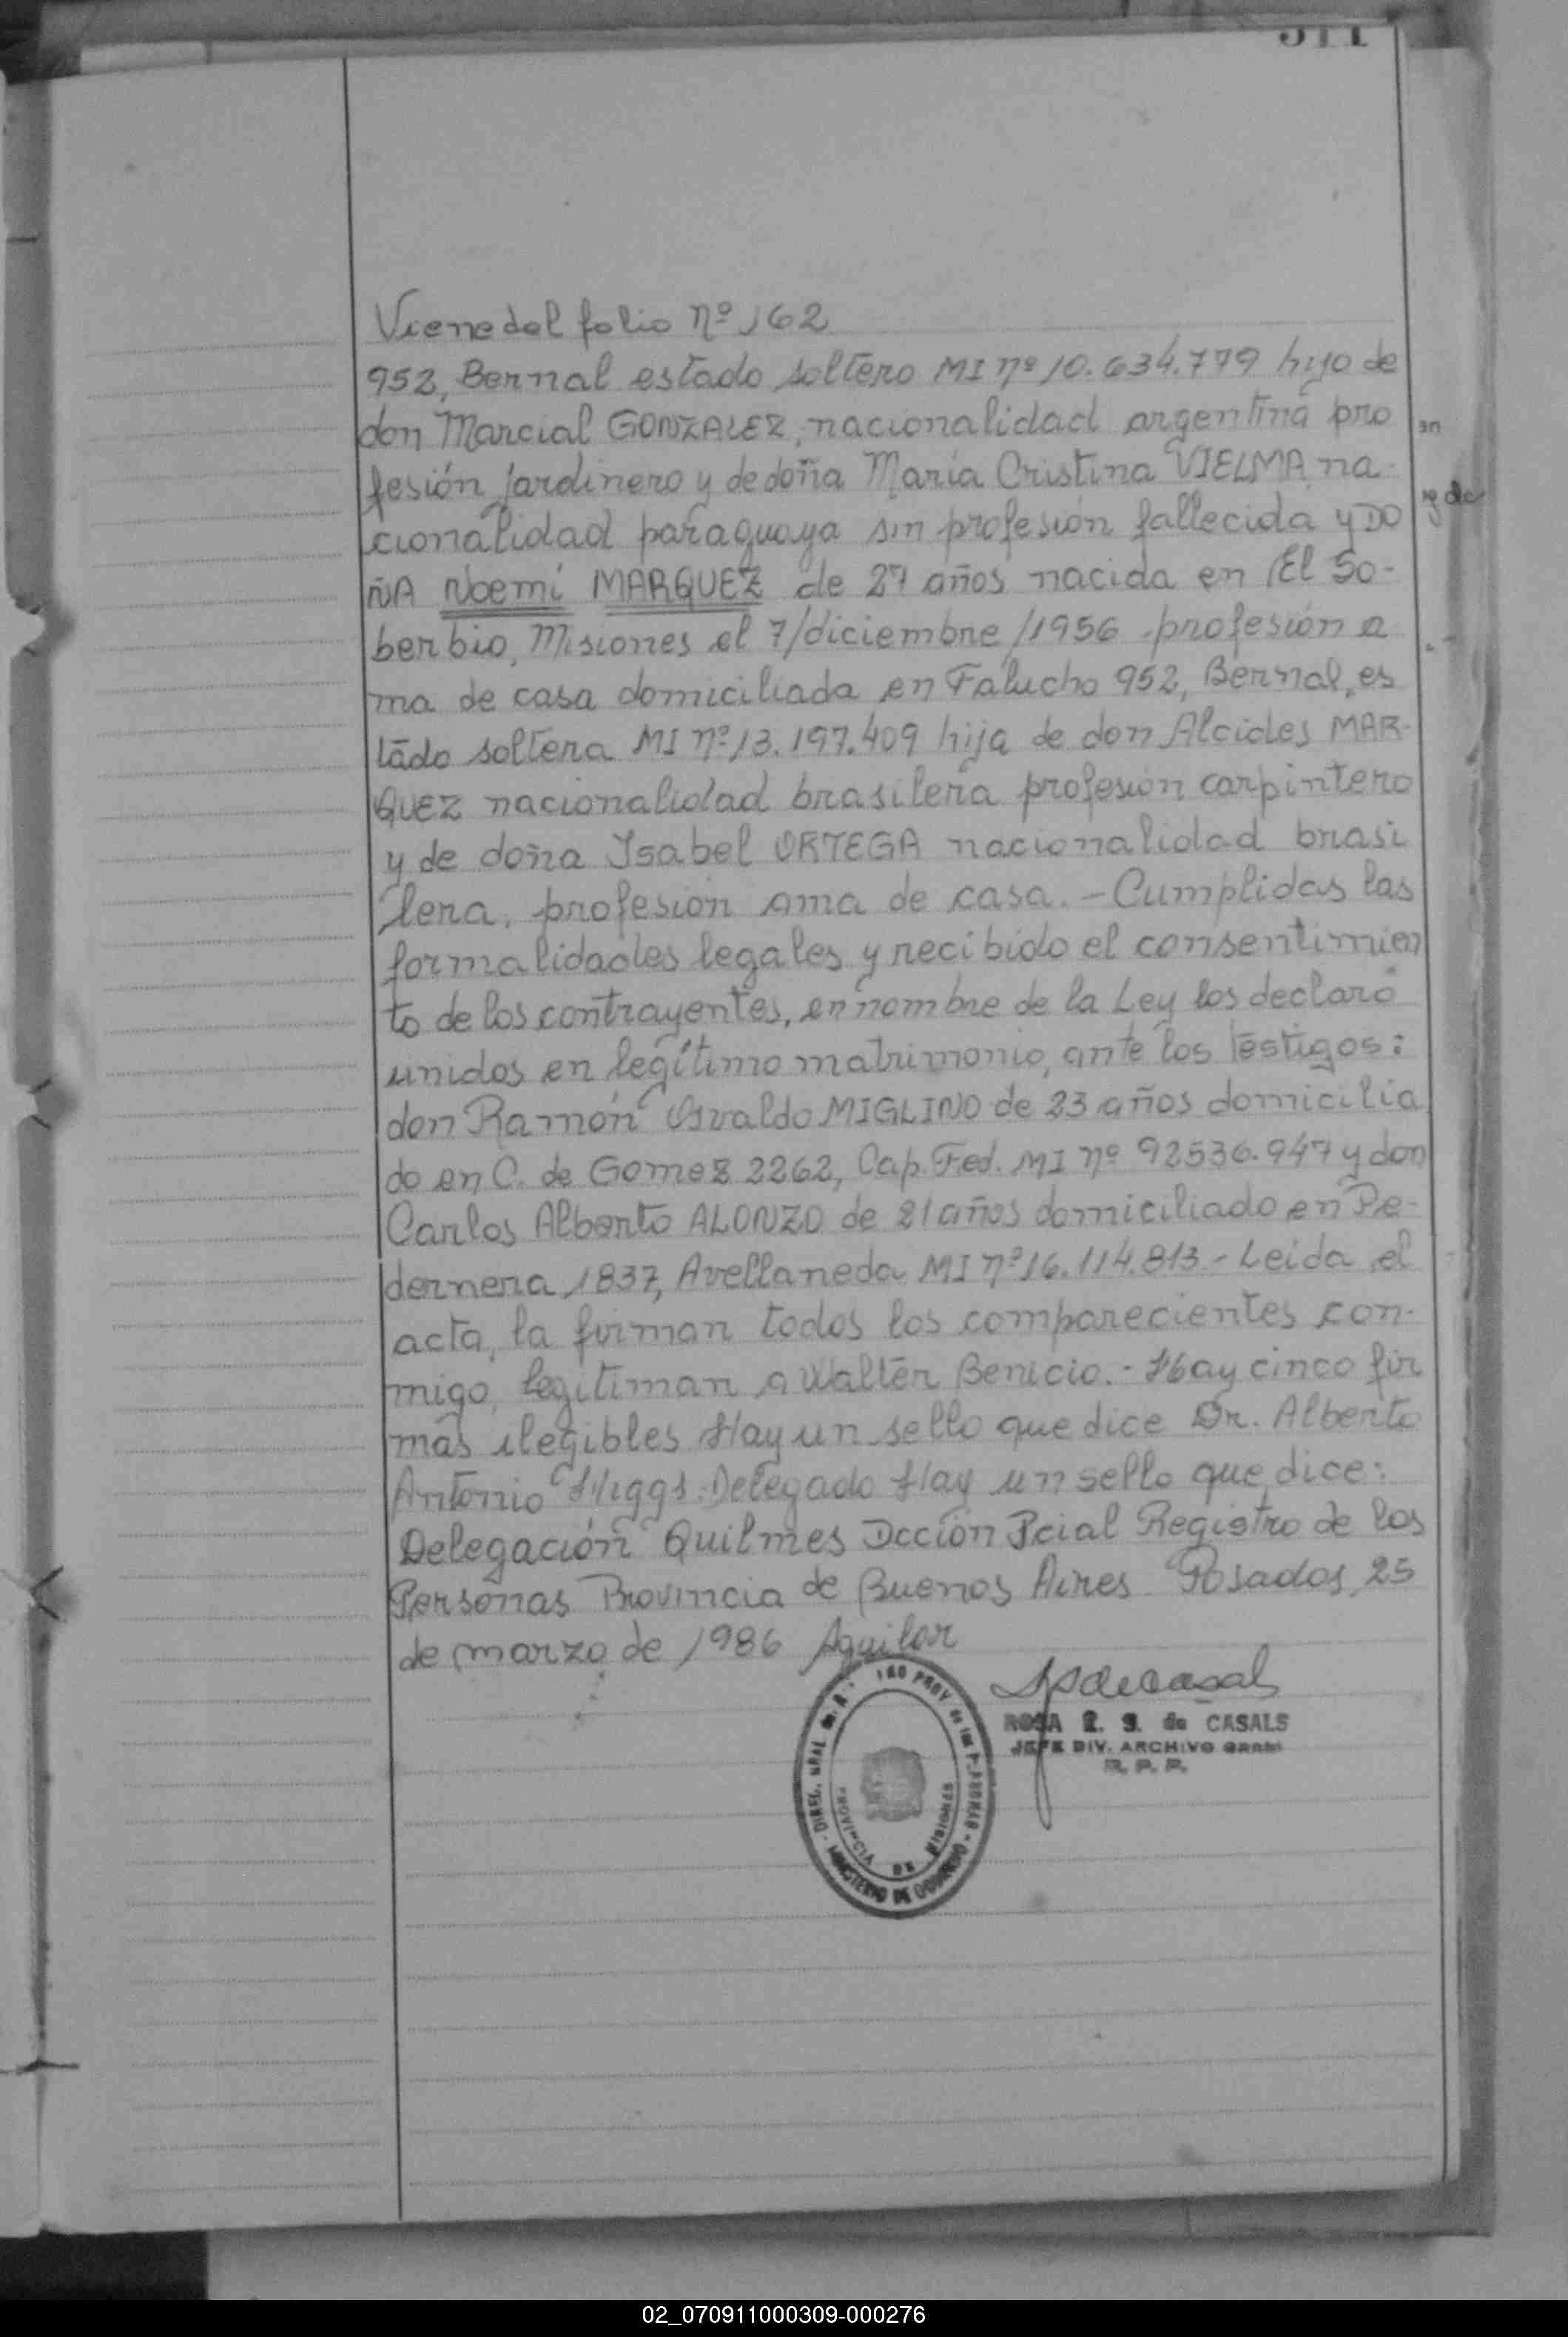 Viene del folio Nº 162
952, Bernal estado soltero MI Nº 10.634.779 hijo de
don Marcial GONZALEZ, nacionalidad argentina pro
fesión jardinero y de doña María Cristina VIELMA na
cionalidad paraguaya sin profesión fallecida y DO
ÑA Noemí MARQUEZ de 27 años nacida en El So-
berbio, Misiones el 7/diciembre/1956 profesión a
ma de casa domiciliada en Falucho 952, Bernal, es
tado soltera MI Nº 13.197.409 hija de don Alcides MAR-
QUEZ nacionalidad brasilera profesión carpintero
y de doña Isabel ORTEGA nacionalidad brasi
lera, profesión ama de casa. - Cumplidas las
formalidades legales y recibido el consentimien
to de los contrayentes, en nombre de la Ley los declaro
unidos en legítimo matrimonio, ante los testigos:
don Ramón Osvaldo MIGLINO de 23 años domicilia
do en C. de Gomez 2262, Cap. Fed. MI Nº 92536.947 y don
Carlos Alberto ALONZO de 21 años domiciliado en Pe-
dernera 1837, Avellaneda MI Nº 16.114.813 - Leída el
acta, la firman todos los comparecientes con-
migo, legitiman a Walter Benicio. - Hay cinco fir
mas ilegibles Hay un sello que dice Dr. Alberto
Antonio Higgs. Delegado Hay un sello que dice:
Delegación Quilmes Dcción Pcial Registro de los
Personas Provincia de Buenos Aires Posadas, 25
de marzo de 1986 Aguilar
ROSA R. S. de CASALS
JEFE DIV. ARCHIVO GRAL
R. P. P.
PROVINCIA DE MISIONES
MINISTERIO DE GOBIERNO
02_070911000309-000276